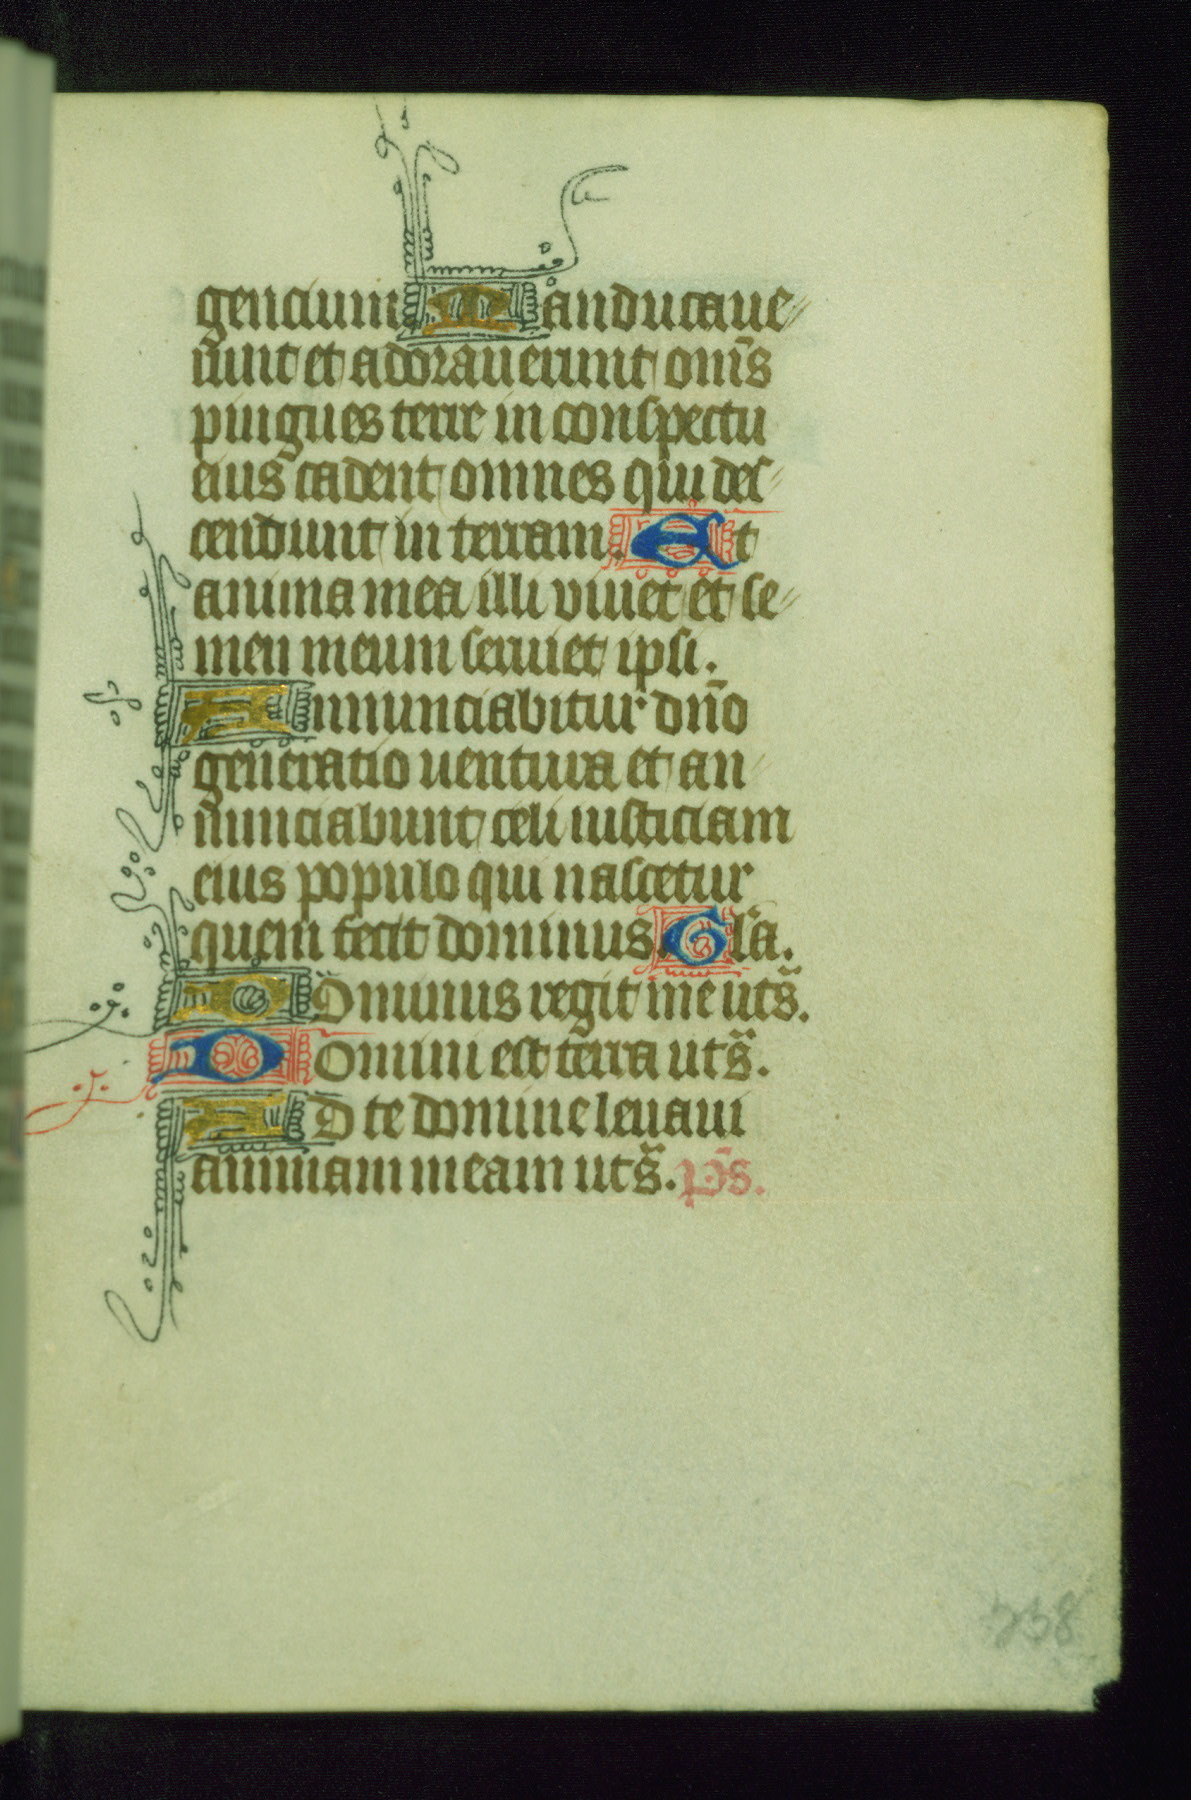 gencium Manducaue
runt et adorauerunt om̅s
pingues terre in conspectu
eius cadent omnes qui des
cendunt in terram. Et
anima mea illi viuet et se
men meum seruiet ipsi.
Annunciabitur dn̅o
generatio uentura et an
nunciabunt celi iusticiam
eius populo qui nascetur
quem fecit dominus. Gl̅a.
Dominus regit me ut s̅.
Domini est terra ut s̅.
Ad te domine leuaui
animam meam ut s̅. p̅s.
338